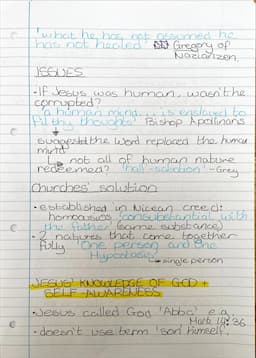 'what he has not assumed he
has not healed' Gregory of
Nazianzen.
ISSUES
• If Jesus was human, wasn't he
corrupted?
'a human mind... is enslaved to
filthy thoughts' Bishop Apollinaris
↳ suggested the Word replaced the human
mind
↳ not all of human nature
redeemed? 'half-salvation' - Greg
Churches' solution
• established in Nicean creed:
homoousios 'consubstantial with
the father' (same substance)
• 2 natures that come together
fully 'One person and one
Hypostasis'
↳ single person
JESUS' KNOWLEDGE OF GOD +
SELF AWARENESS
• Jesus called God 'Abba' e.g.
Mark 14:36
• doesn't use term 'son' himself.